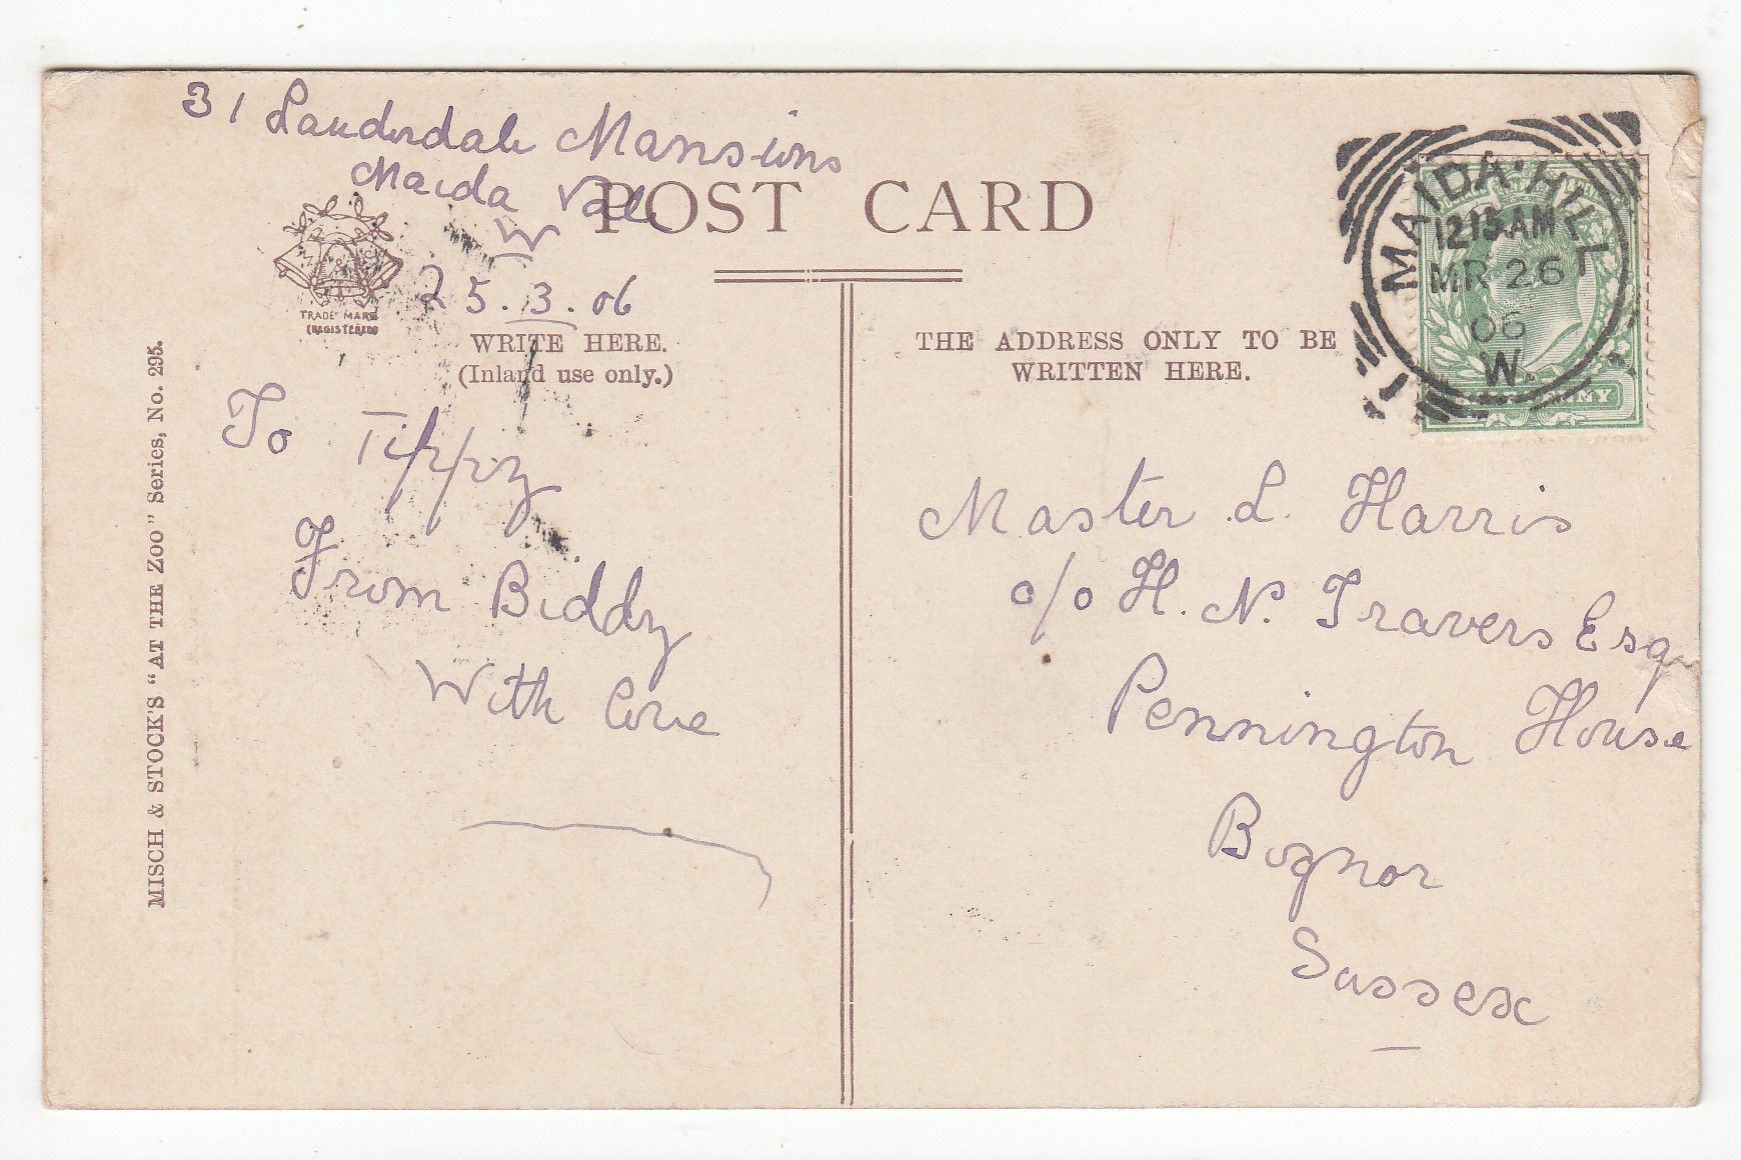 31 Lauderdale Mansions
Maida Vale
W
25.3.06
POST CARD
TRADE MARK
(REGISTERED)
WRITE HERE.
(Inland use only.)
To Tippy
From Biddy
With love
MISCH & STOCK'S "AT THE ZOO" Series, No. 295.
THE ADDRESS ONLY TO BE
WRITTEN HERE.
MAIDA·HILL
12.15.AM
MR 26
06
W.
Master L. Harris
c/o H. N. Travers Esq
Pennington House
Bognor
Sussex